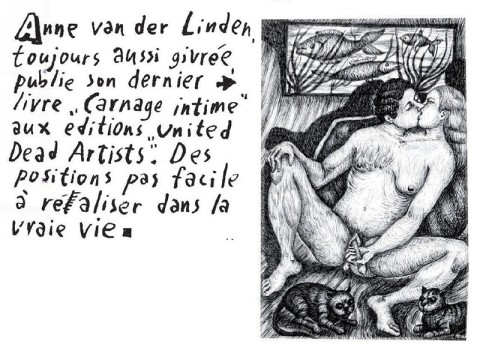 Anne van der Linden,
toujours aussi givrée,
publie son dernier →
livre „Carnage intime"
aux editions „United
Dead Artists". Des
positions pas facile
à refaliser dans la
vraie vie ■